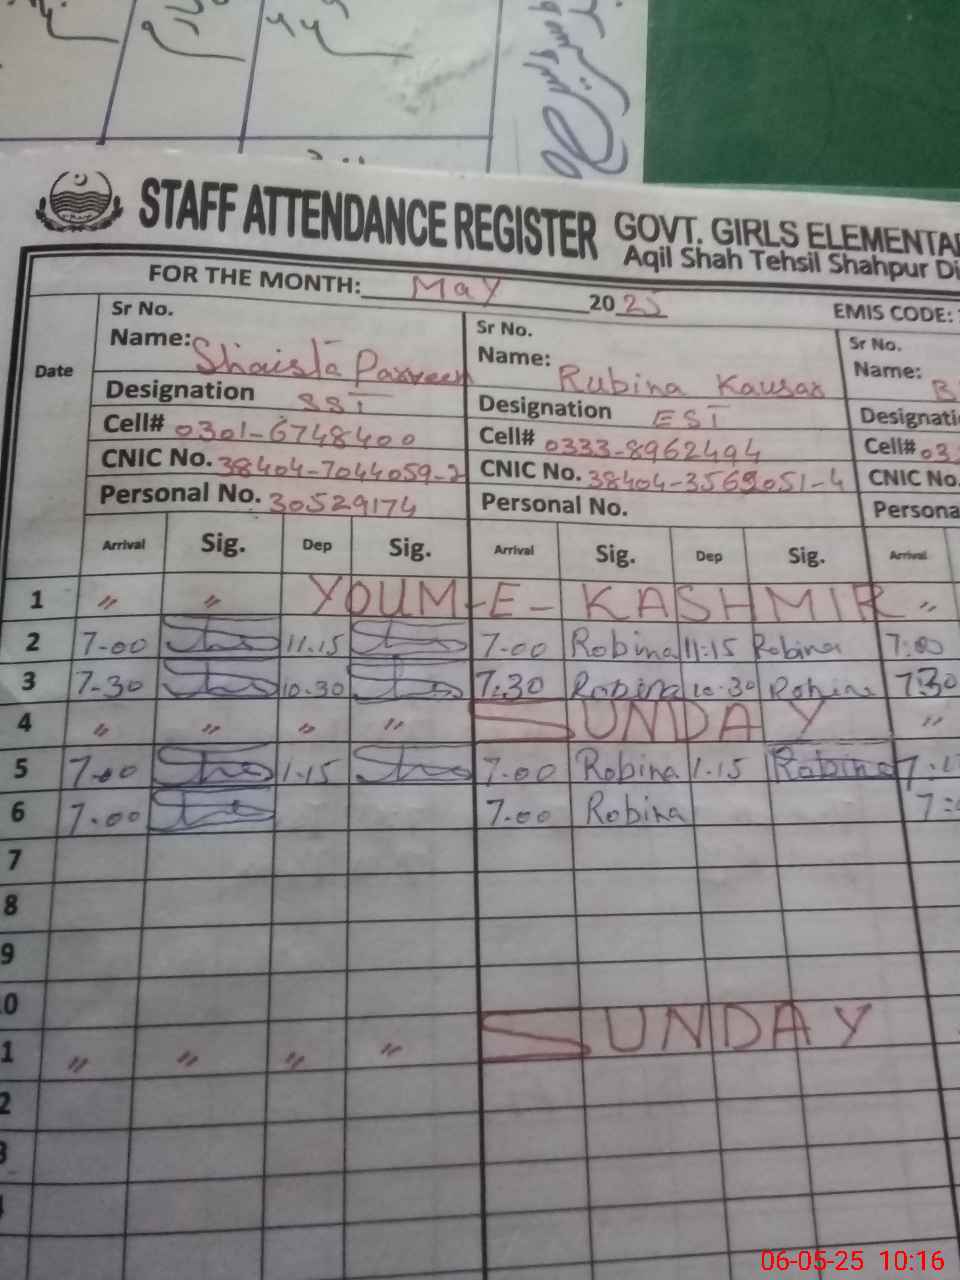 STAFF ATTENDANCE REGISTER GOVT. GIRLS ELEMENTA
Aqil Shah Tehsil Shahpur Di
FOR THE MONTH: May 2025 EMIS CODE:
Sr No. Sr No. Sr No.
Date Name: Shaista Parveen Name: Rubina Kausar Name: B
Designation SST Designation EST Designati
Cell# 0301-6748400 Cell# 0333-8962494 Cell# 03
CNIC No. 38404-7044059-2 CNIC No. 38404-3569051-4 CNIC No.
Personal No. 30529174 Personal No. Persona
Arrival Sig. Dep Sig. Arrival Sig. Dep Sig. Arrival
1 〃 〃 YOUM-E-KASHMIR 〃
2 7-00 11.15 7-00 Robina 11:15 Robina 7:00
3 7-30 10.30 7:30 Robina 10.30 Robina 730
4 〃 〃 〃 〃 SUNDAY 〃
5 7-00 1.15 7.00 Robina 1.15 Robina 7.
6 7.00 7.00 Robina 7:
7
8
9
0
1 〃 〃 〃 〃 SUNDAY
2
3
06-05-25 10:16